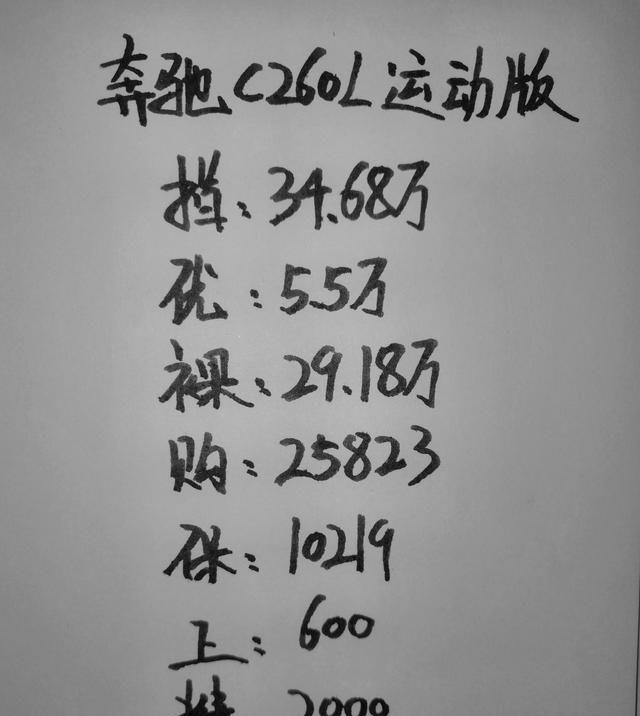 奔驰C260L运动版
挡：34.68万
优：5.5万
裸：29.18万
购：25823
保：10219
上：600
2000